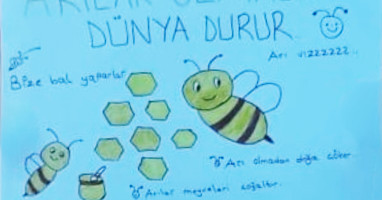 ARILAR OLMAZSA
DÜNYA DURUR.
Arı vızzzzzz..
Bize bal yaparlar
Arı olmadan doğa çöker.
Arılar meyveleri çoğaltır.